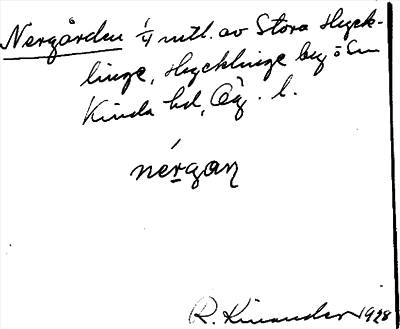 Nergården 1/4 mtl. av Stora Hyck-
linge, Hycklinge by o Sn
Kinda hd, Ög. l.
nérgan
R. Kinander 1928